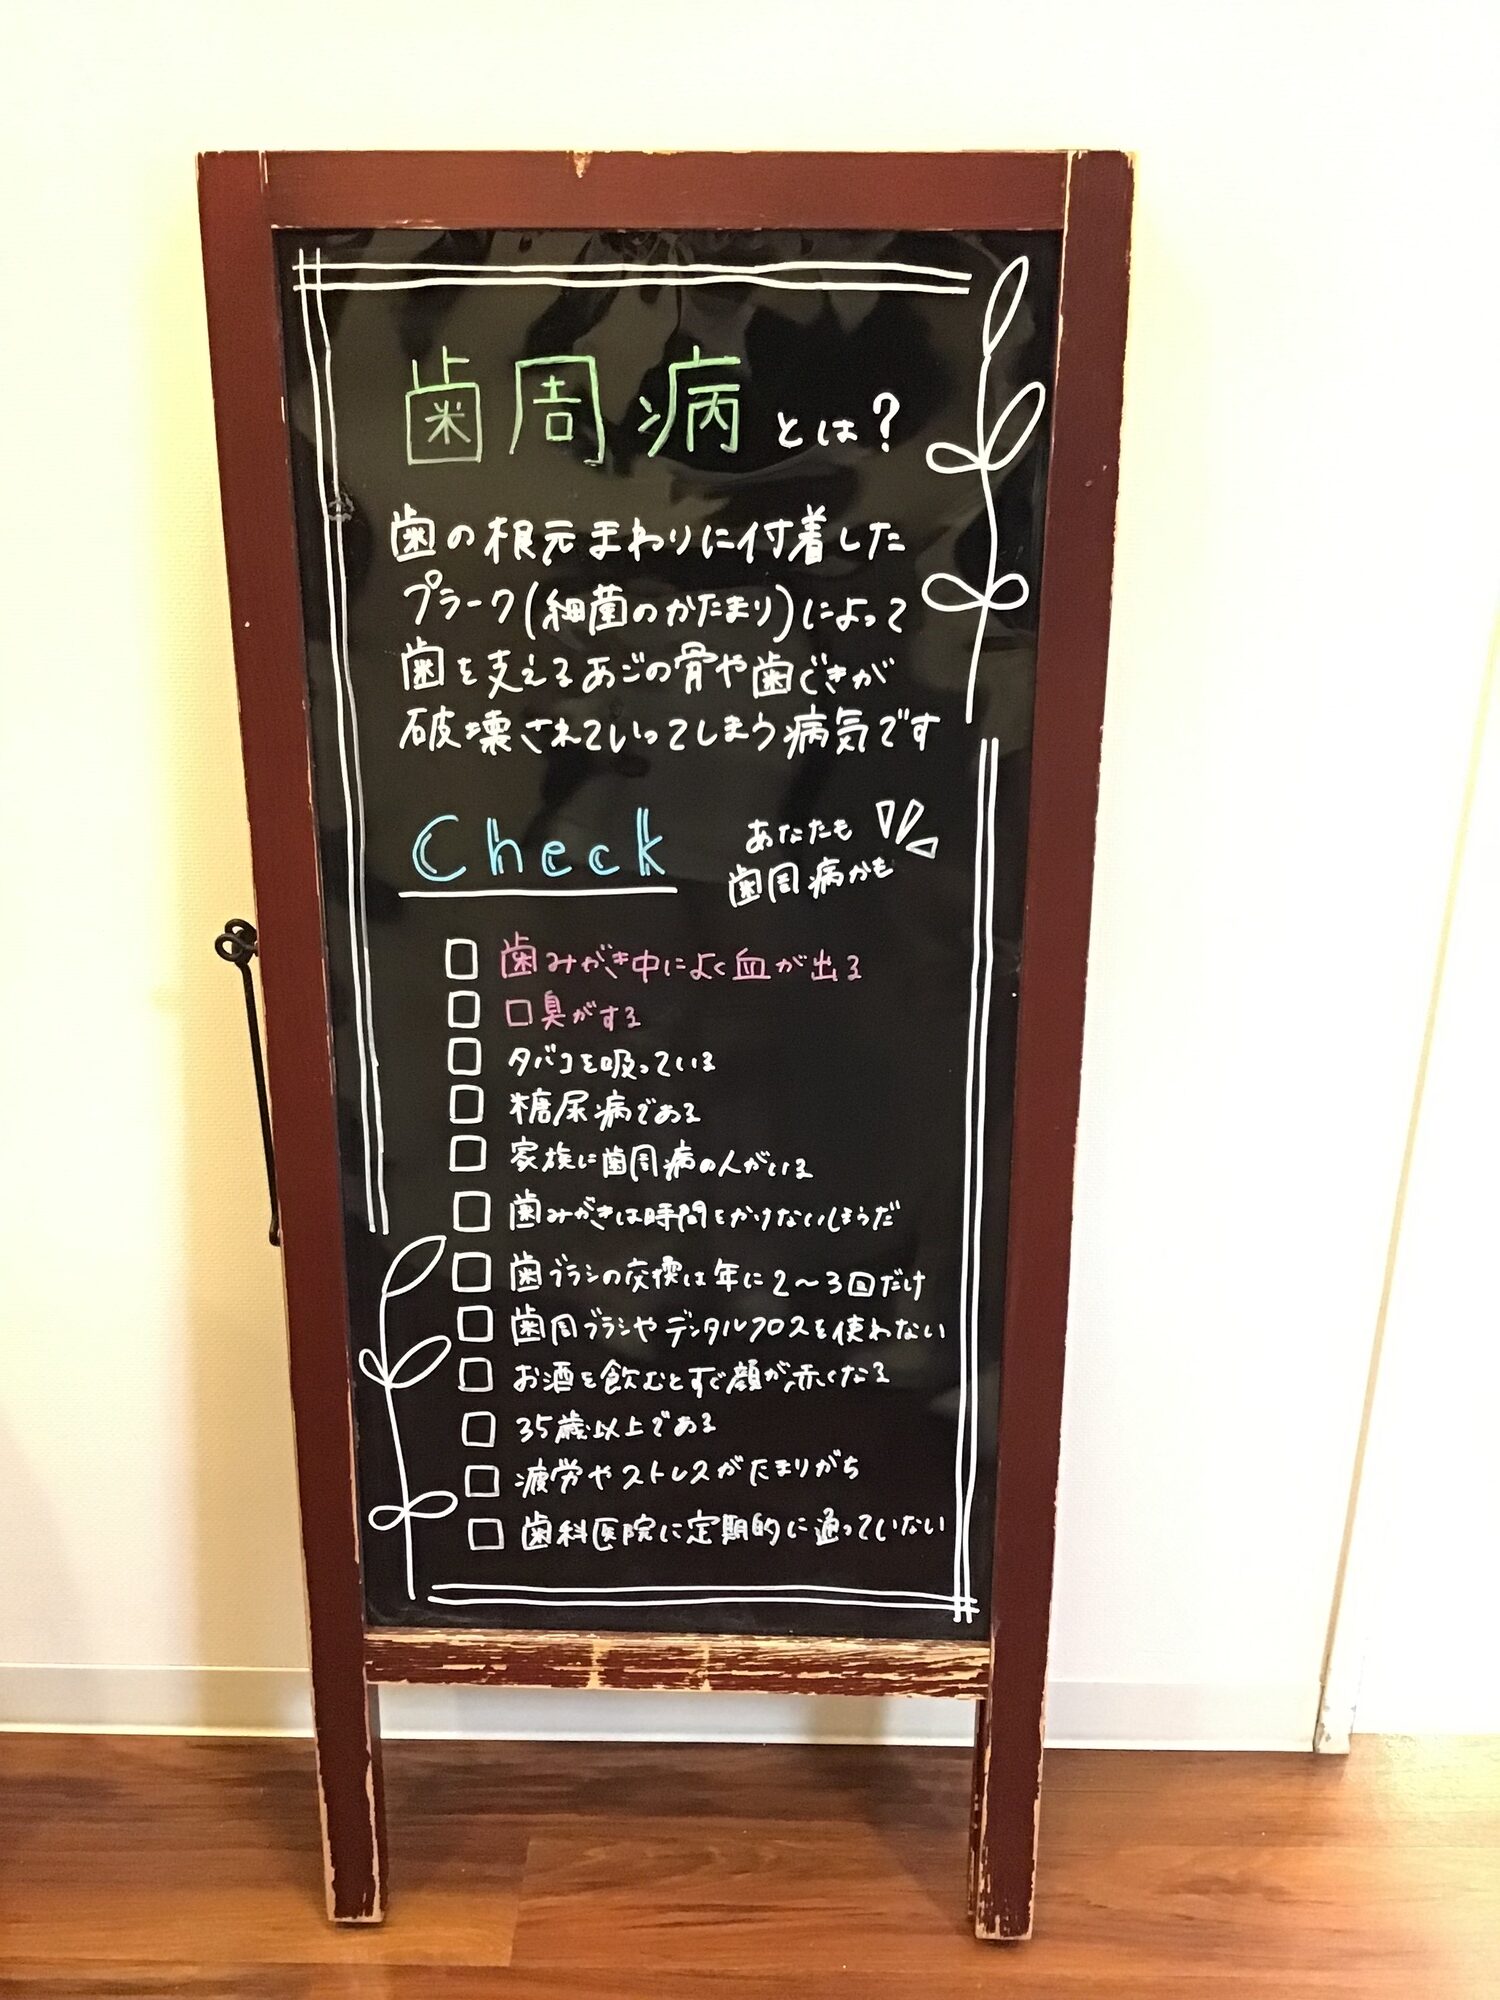 歯周病とは?
歯の根元まわりに付着した
プラーク(細菌のかたまり)によって
歯を支えるあごの骨や歯ぐきが
破壊されていってしまう病気です
Check
あなたも
歯周病かも
□ 歯みがき中によく血が出る
□ 口臭がする
□ タバコを吸っている
□ 糖尿病である
□ 家族に歯周病の人がいる
□ 歯みがきは時間をかけないほうだ
□ 歯ブラシの交換は年に2〜3回だけ
□ 歯周ブラシやデンタルフロスを使わない
□ お酒を飲むとすぐ顔が赤くなる
□ 35歳以上である
□ 疲労やストレスがたまりがち
□ 歯科医院に定期的に通っていない